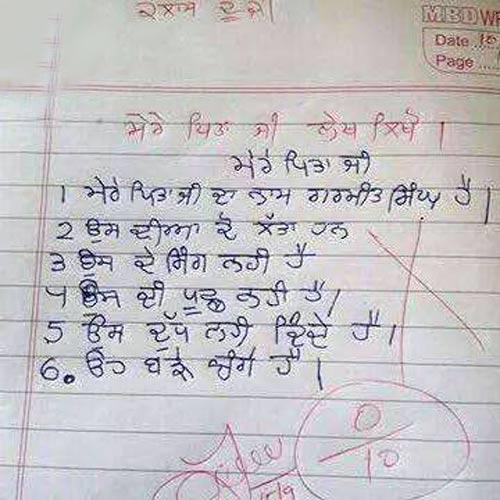 ਕਲਾਸ ਦੂਜੀ
MBD WR
Date ..10
Page .....
ਮੇਰੇ ਪਿਤਾ ਜੀ ਲੇਖ ਲਿਖੋ।
ਮੇਰੇ ਪਿਤਾ ਜੀ
1 ਮੇਰੇ ਪਿਤਾ ਜੀ ਦਾ ਨਾਮ ਗਰਮੀਤ ਸਿੰਘ ਹੈ।
2 ਉਸ ਦੀਆ ਦੋ ਲੱਤਾ ਹਨ
3 ਉਸ ਦੇ ਸਿੰਗ ਨਹੀ ਹੈ
4 ਉਸ ਦੀ ਪੂਛ ਨਹੀ ਹੈ।
5 ਉਸ ਦੁੱਧ ਨਹੀ ਦਿੰਦੇ ਹੈ।
6. ਉਹ ਚੰਗੇ ਹੈ।
0
10